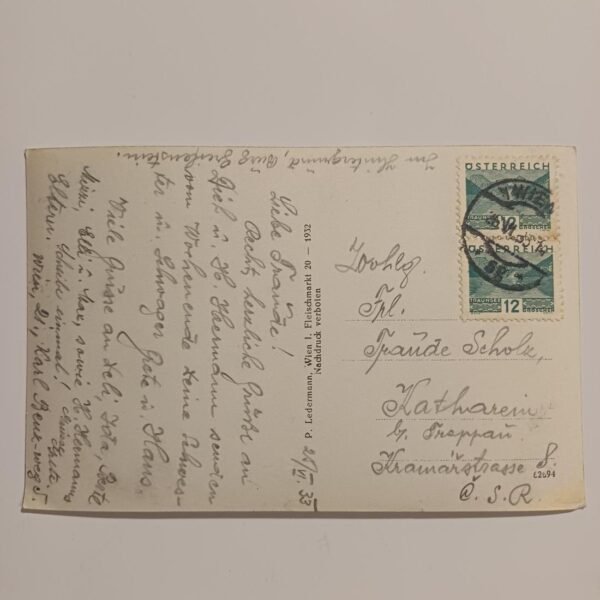 Im Hintergrund, Burg Greifenstein.
Liebe Traude!
Recht herzliche Grüße an
Dich u. H. Haermann senden
vom Wochenende Deine Schwes-
ter u. Schwager Grete u. Hans.
Viele Grüsse an Heli, Ida, Berte
Mizzi, Elli u. Max, sowie H. Hermanns
Eltern. Schreibe einmal!
Wien, 21., Karl Benz-weg 5.
28/VI. 33
P. Ledermann, Wien I. Fleischmarkt 20 — 1932
Nachdruck verboten
ÖSTERREICH
12
GROSCHEN
ÖSTERREICH
12
GROSCHEN
WIEN
Wohlg.
Frl.
Traude Scholz,
Katharein
b/ Troppau
Kramářstrasse 8.
Č. S. R.
L2694